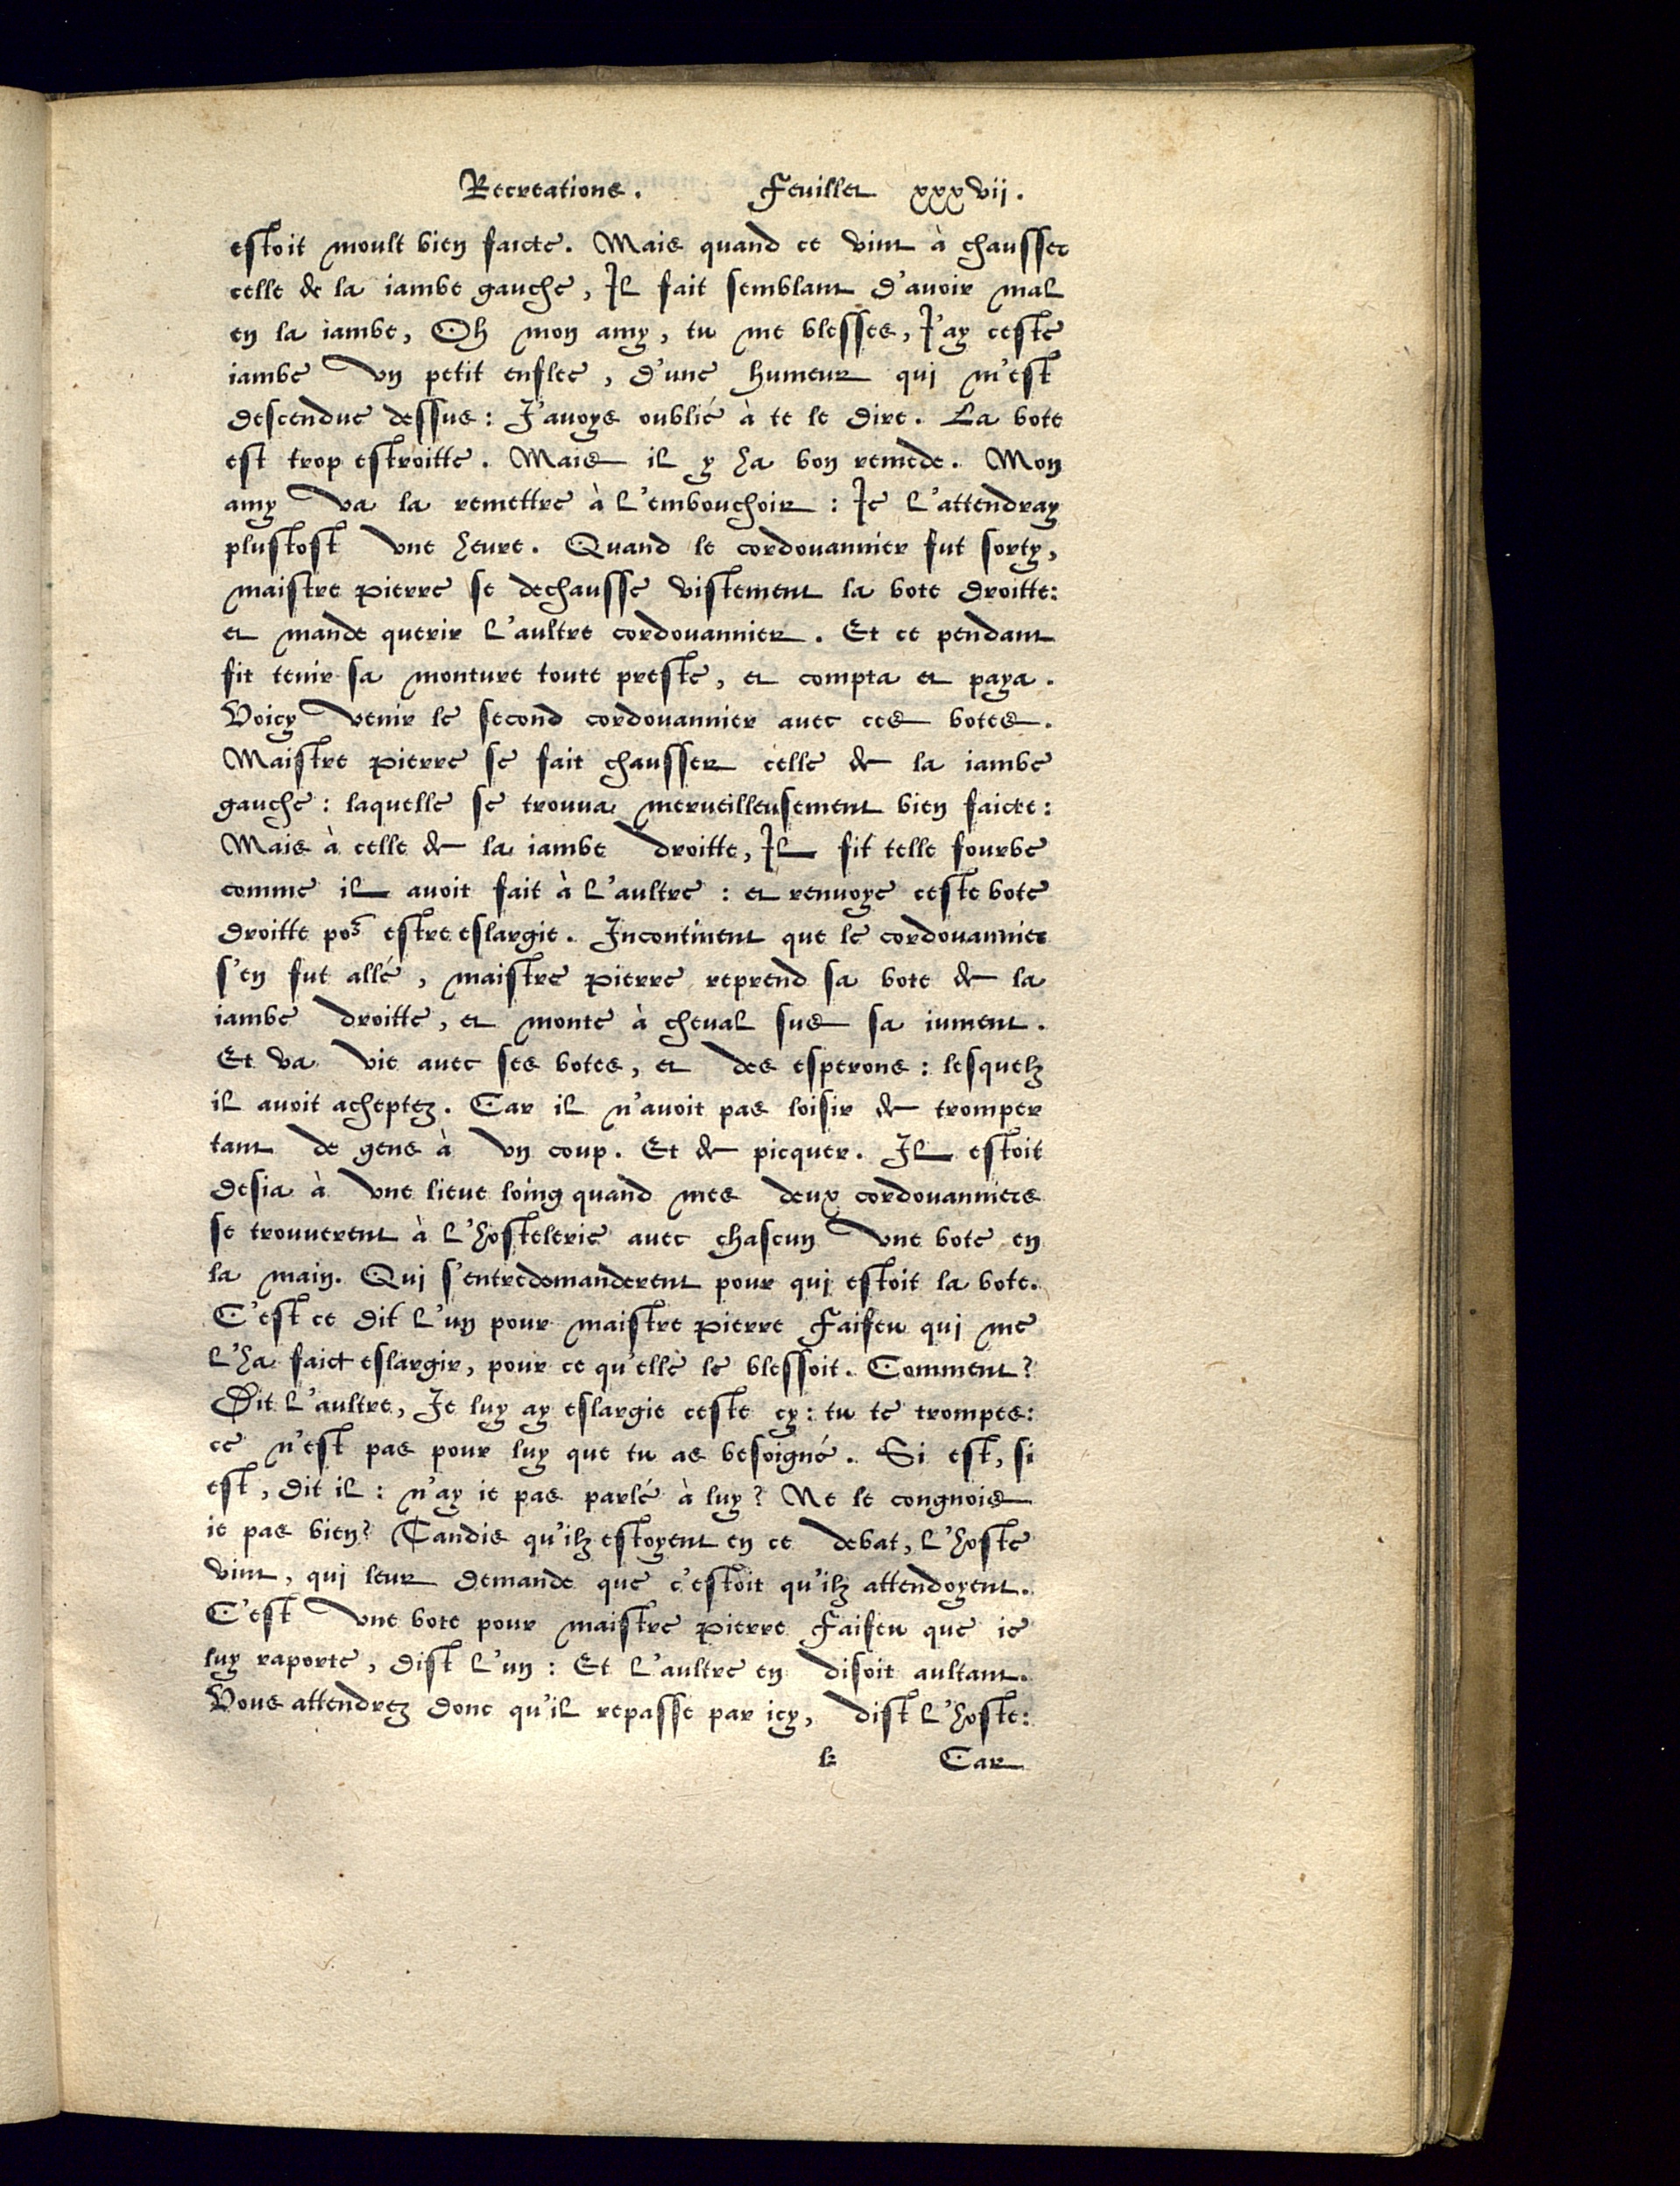 Recreations. Feuillet xxxvij.
estoit moult bien faicte. Mais quand ce vint à chausser
celle de la iambe gauche, Il fait semblant d'auoir mal
en la iambe, Oh mon amy, tu me blesses, I'ay ceste
iambe vn petit enflee, d'une humeur qui m'est
descendue dessus: I'auoys oublié à te le dire. La bote
est trop estroitte. Mais il y ha bon remede. Mon
amy va la remettre à l'embouchoir: Ie l'attendray
plustost vne heure. Quand le cordouannier fut sorty,
maistre pierre se dechausse vistement la bote droitte:
et mande querir l'aultre cordouannier. Et ce pendant
fit tenir sa monture toute preste, et compta et paya.
Voicy venir le second cordouannier auec ces botes.
Maistre pierre se fait chausser celle de la iambe
gauche: laquelle se trouua merueilleusement bien faicte:
Mais à celle de la iambe droitte, Il fit telle fourbe
comme il auoit fait à l'aultre: et renuoye ceste bote
droitte poᷣ estre eslargie. Incontinent que le cordouannier
s'en fut allé, maistre pierre reprend sa bote de la
iambe droitte, et monte à cheual sus sa iument.
Et va vie auec ses botes, et des esperons: lesquelz
il auoit acheptez. Car il n'auoit pas loisir de tromper
tant de gens à vn coup. Et de picquer. Il estoit
desia à vne lieue loing quand mes deux cordouanniers
se trouuerent à l'hostelerie auec chascun vne bote en
la main. Qui s'entredemanderent pour qui estoit la bote.
C'est ce dit l'un pour maistre pierre Faifeu qui me
l'ha faict eslargir, pour ce qu'elle le blessoit. Comment?
Dit l'aultre, Ie luy ay eslargie ceste cy: tu te trompes:
ce n'est pas pour luy que tu as besoigné. Si est, si
est, dit il: n'ay ie pas parlé à luy? Ne le congnois
ie pas bien? Tandis qu'ilz estoyent en ce debat, l'hoste
vint, qui leur demande que c'estoit qu'ilz attendoyent.
C'est vne bote pour maistre pierre Faifeu que ie
luy raporte, dist l'un: Et l'aultre en disoit aultant.
Vous attendrez donc qu'il repasse par icy, dist l'hoste:
k Car